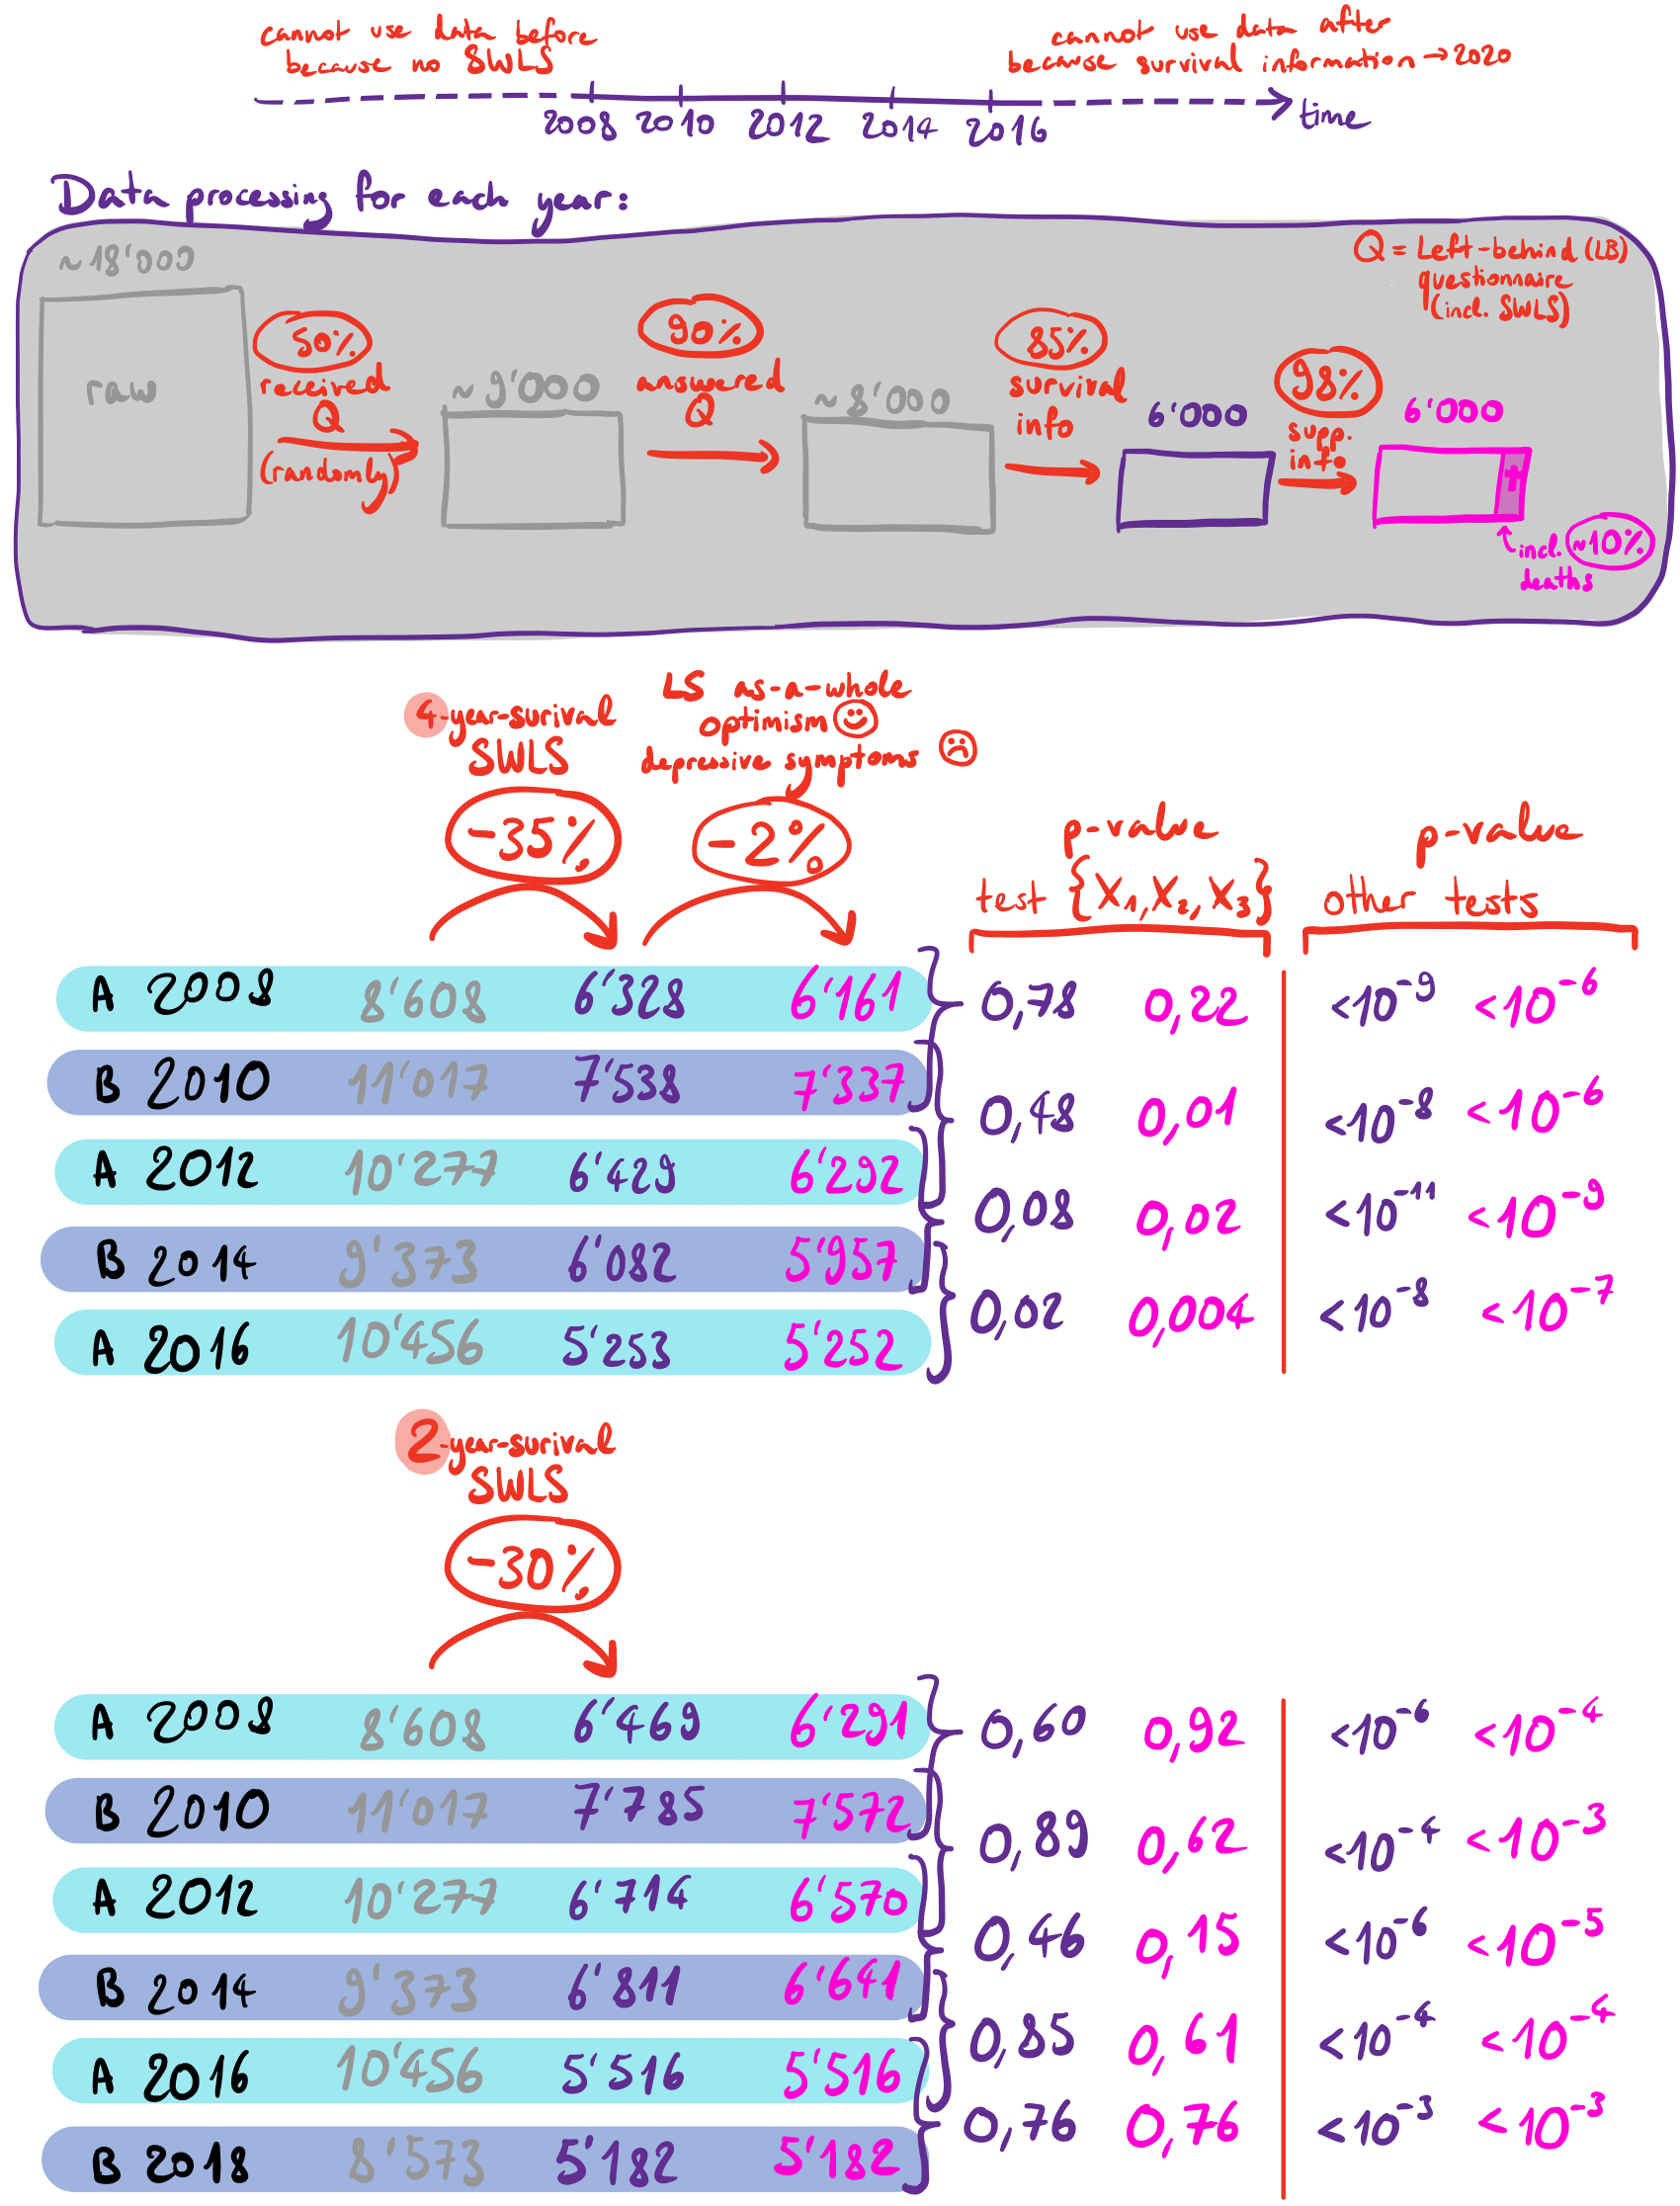 cannot use data before
because no SWLS
cannot use data after
because survival information → 2020
2008 2010 2012 2014 2016 time
Data processing for each year:
~18'000
raw
50%
received
Q
(randomly)
~9'000
90%
answered
Q
~8'000
85%
survival
info
6'000
98%
supp.
info
6'000
†
incl. ~10%
deaths
Q = Left-behind (LB)
questionnaire
(incl. SWLS)
4-year-surival
SWLS
-35%
LS as-a-whole
optimism
depressive symptoms
-2%
p-value
test {X₁, X₂, X₃}
p-value
other tests
A 2008 8'608 6'328 6'161 0,78 0,22 <10⁻⁹ <10⁻⁶
B 2010 11'017 7'538 7'337
0,48 0,01 <10⁻⁸ <10⁻⁶
A 2012 10'277 6'429 6'292
0,08 0,02 <10⁻¹¹ <10⁻⁹
B 2014 9'373 6'082 5'957
0,02 0,004 <10⁻⁸ <10⁻⁷
A 2016 10'456 5'253 5'252
2-year-surival
SWLS
-30%
A 2008 8'608 6'469 6'291 0,60 0,92 <10⁻⁶ <10⁻⁴
B 2010 11'017 7'785 7'572
0,89 0,62 <10⁻⁴ <10⁻³
A 2012 10'277 6'714 6'570
0,46 0,15 <10⁻⁶ <10⁻⁵
B 2014 9'373 6'811 6'641
0,85 0,61 <10⁻⁴ <10⁻⁴
A 2016 10'456 5'516 5'516
0,76 0,76 <10⁻³ <10⁻³
B 2018 8'573 5'182 5'182